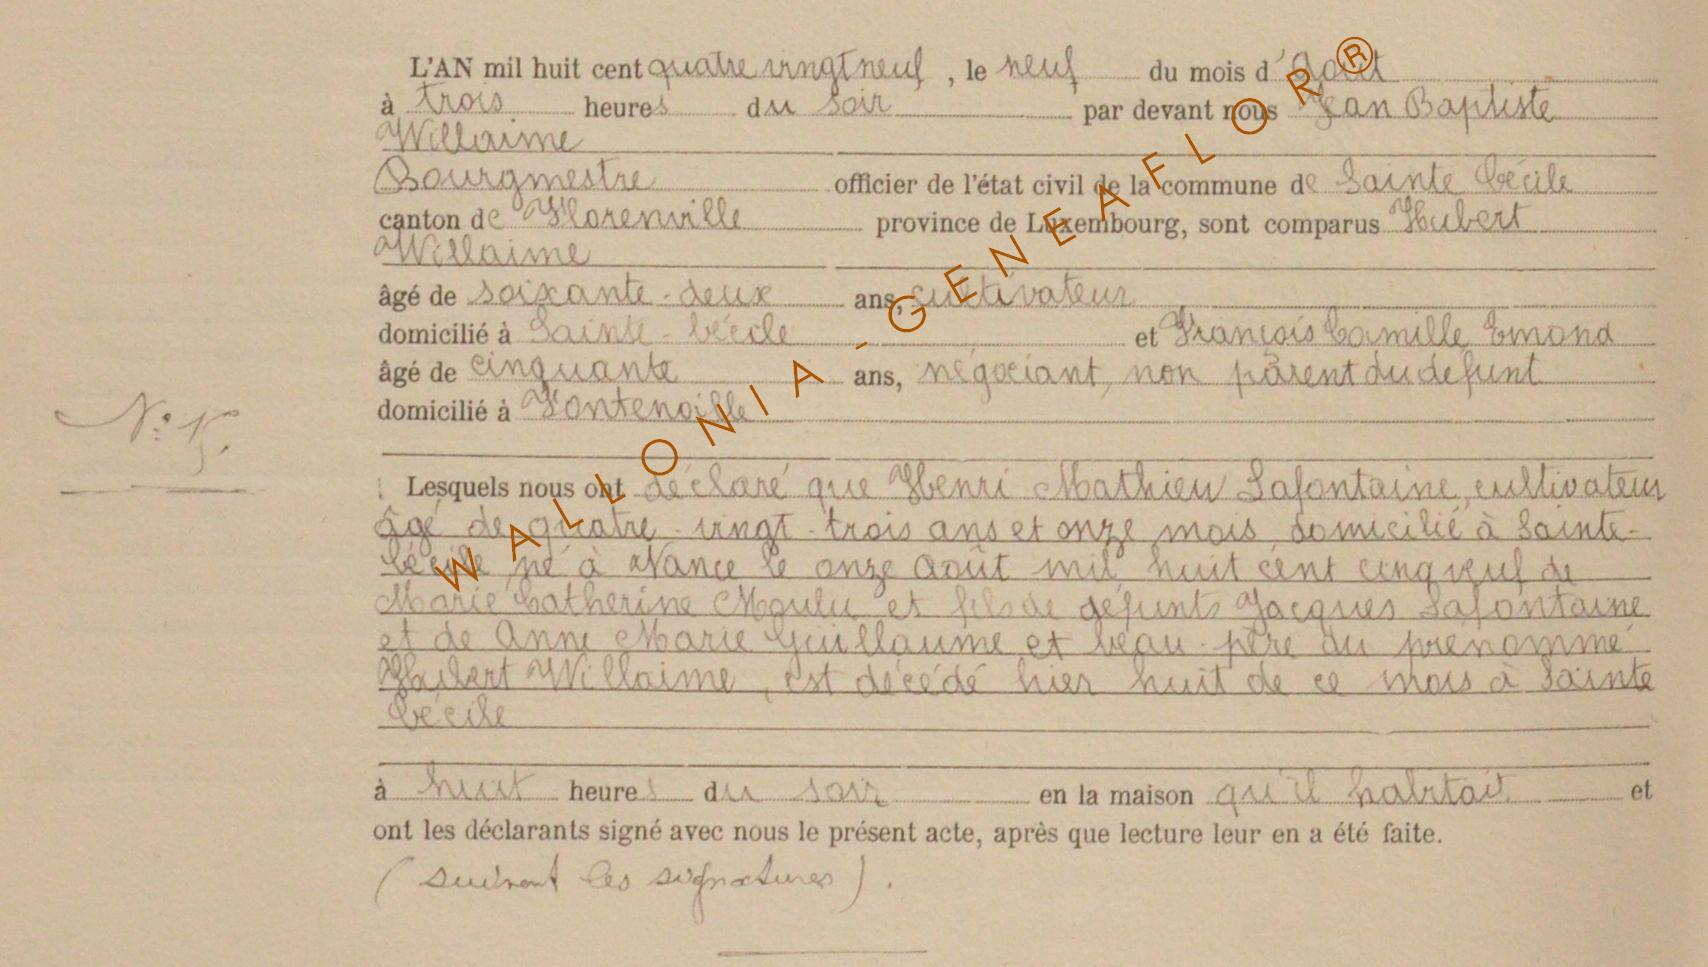 L'AN mil huit cent quatre vingt neuf, le neuf du mois d'Août
à trois heures du soir par devant nous Jean Baptiste
Willaime
Bourgmestre officier de l'état civil de la commune de Sainte Cécile
canton de Florenville province de Luxembourg, sont comparus Hubert
Willaime
âgé de soixante-deux ans, cultivateur
domicilié à Sainte-Cécile et François Camille Emond
âgé de cinquante ans, négociant, non parent du defunt
domicilié à Fontenoille
N°
Lesquels nous ont déclaré que Henri Mathieu Lafontaine, cultivateur
âgé de quatre-vingt-trois ans et onze mois domicilié à Sainte-
Cécile né à Nance le onze Août mil huit cent cinq veuf de
Marie Catherine Moulu et fils de défunts Jacques Lafontaine
et de Anne Marie Guillaume et beau-père du prénommé
Hubert Willaime, est décédé hier huit de ce mois à Sainte
Cécile
à huit heures du soir en la maison qu'il habitait et
ont les déclarants signé avec nous le présent acte, après que lecture leur en a été faite.
(suivent les signatures).
WALLONIA - GENEAFLOR®